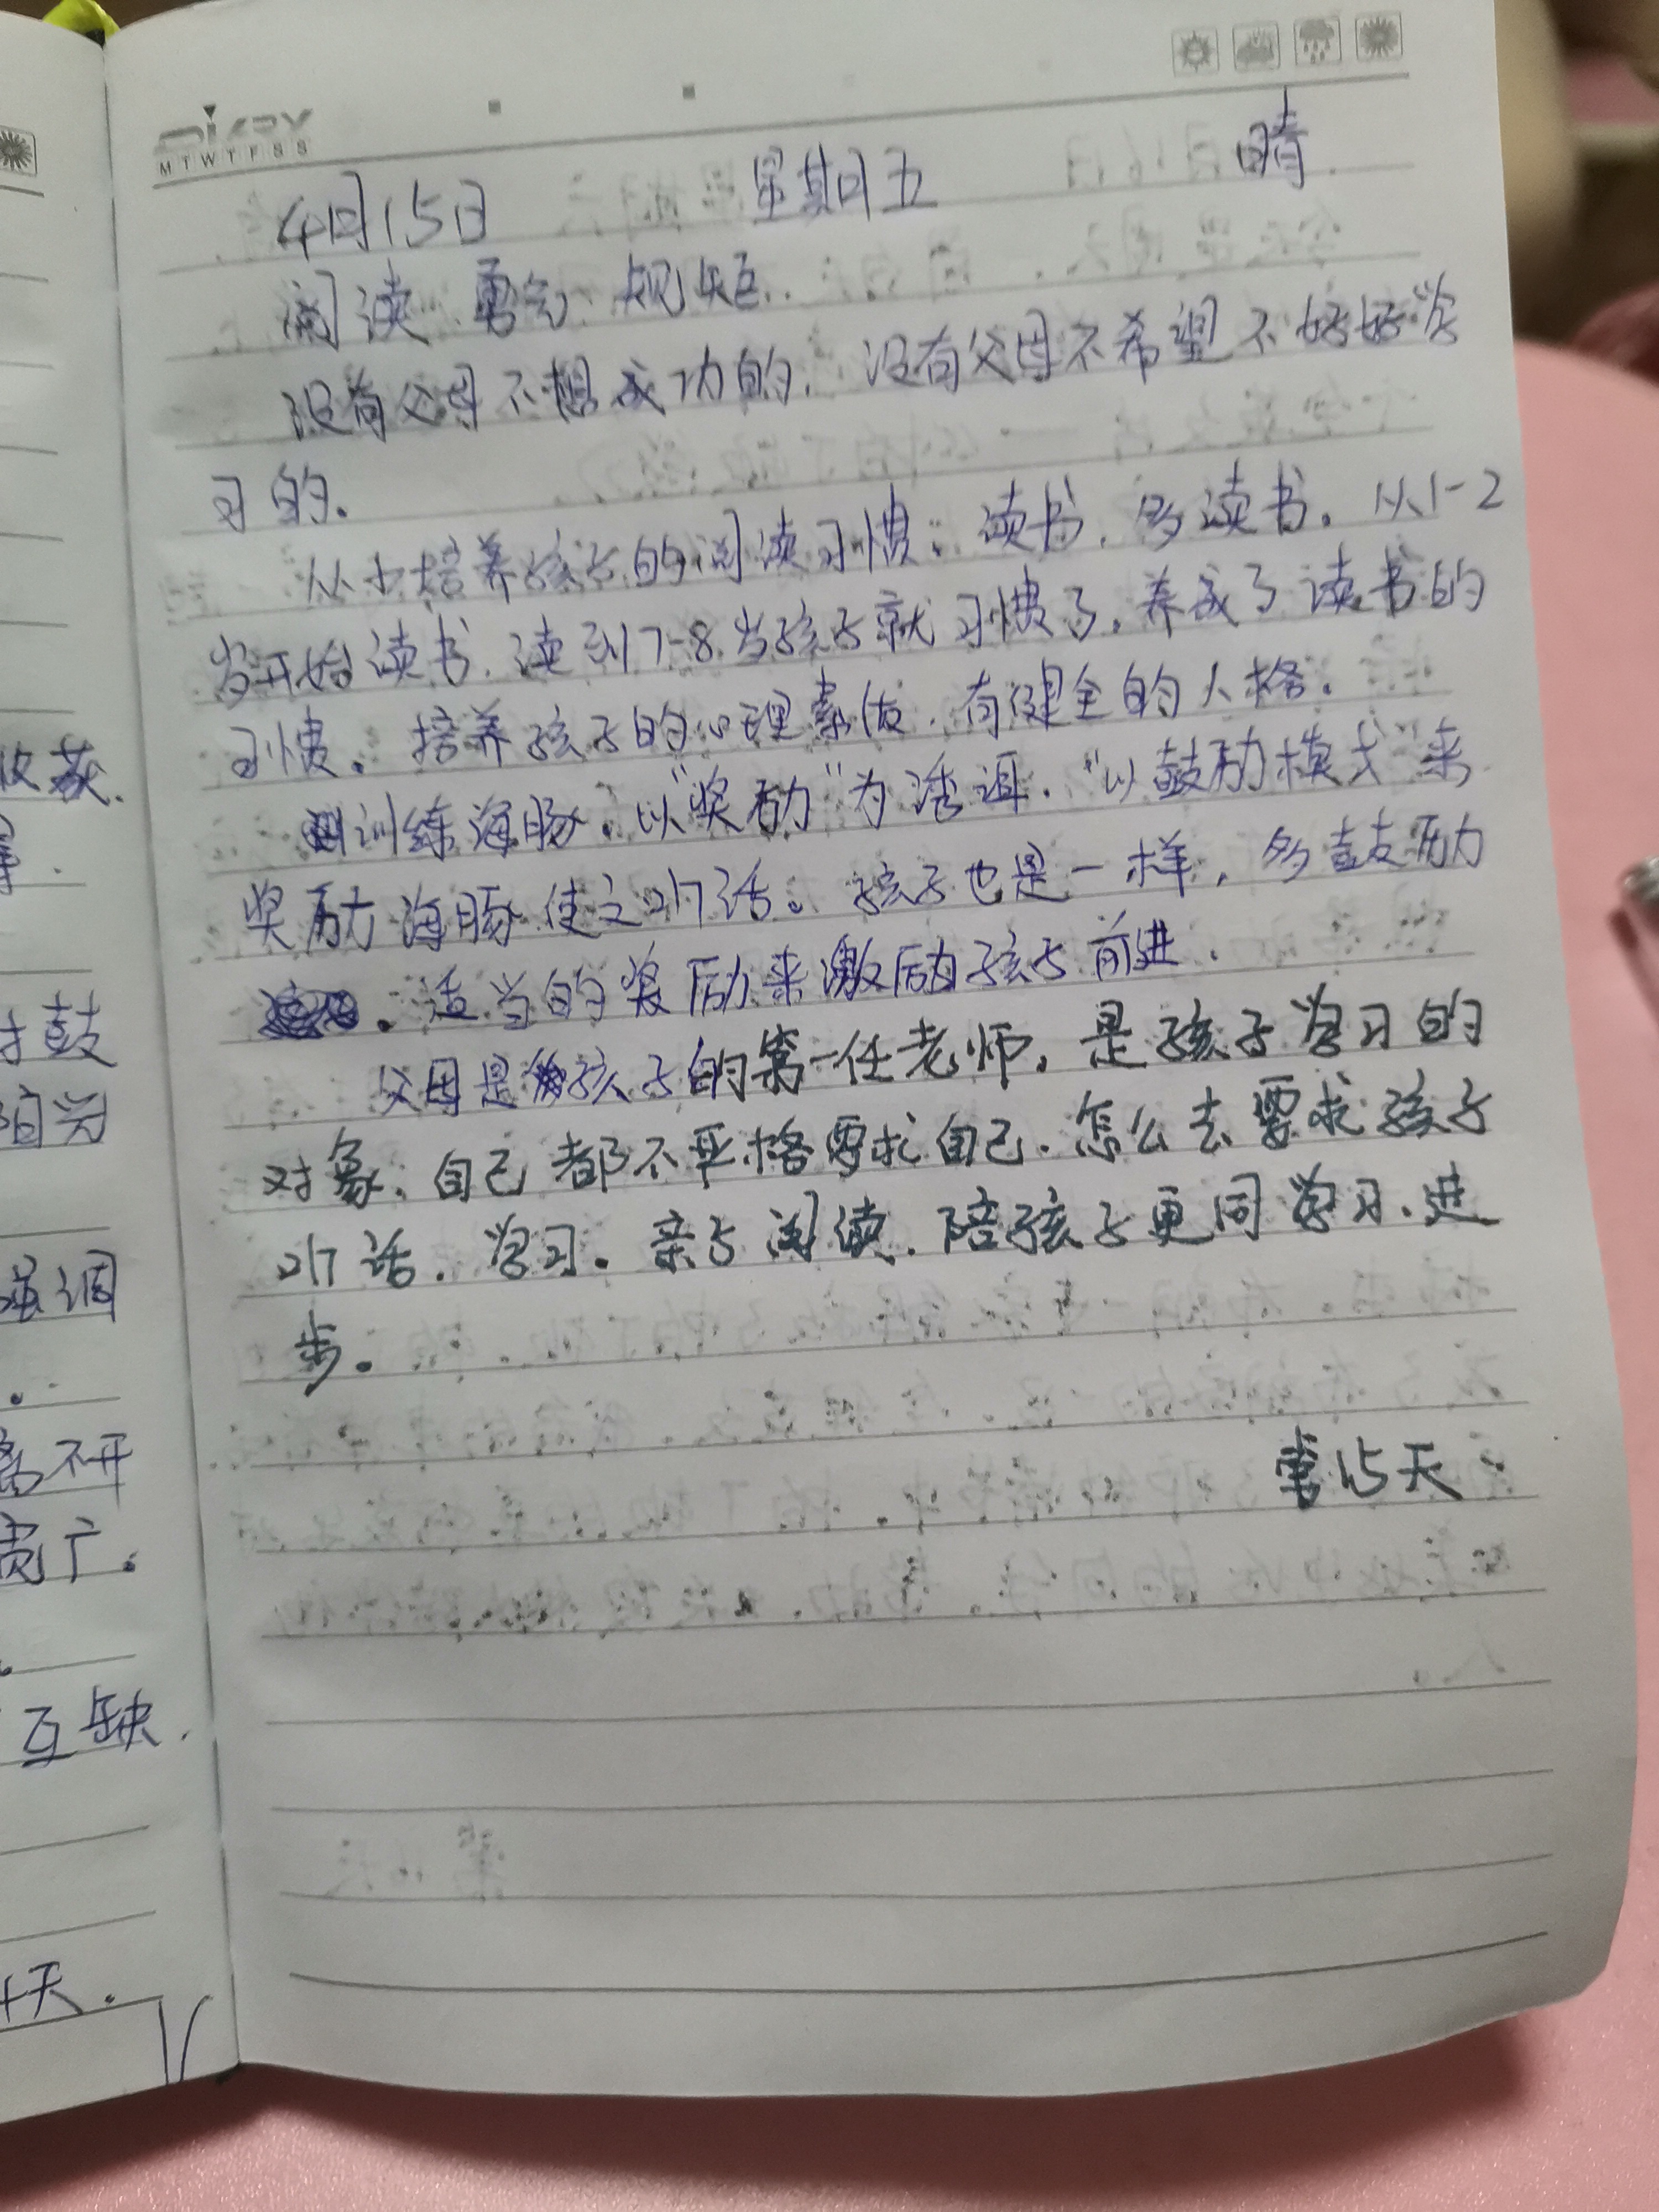 DIARY
M T W T F S S
4月15日 星期五 晴
阅读 勇气 规矩
没有父母不想成功的,没有父母不希望不好好学
习的.
从小培养孩子的阅读习惯:读书,多读书。从1-2
岁开始读书.读到7-8岁孩子就习惯了.养成了读书的
习惯。培养孩子的心理素质.有健全的人格.
训练海豚.以"奖励"为诱饵."以鼓励模式"来
奖励海豚使之听话。孩子也是一样,多鼓励
.适当的奖励来激励孩子前进.
父母是孩子的第一任老师,是孩子学习的
对象,自己都不严格要求自己.怎么去要求孩子
听话.学习。亲子阅读.陪孩子更同学习.进
步。
第15天
收获.
鼓
强调
离不开
互缺.
天.